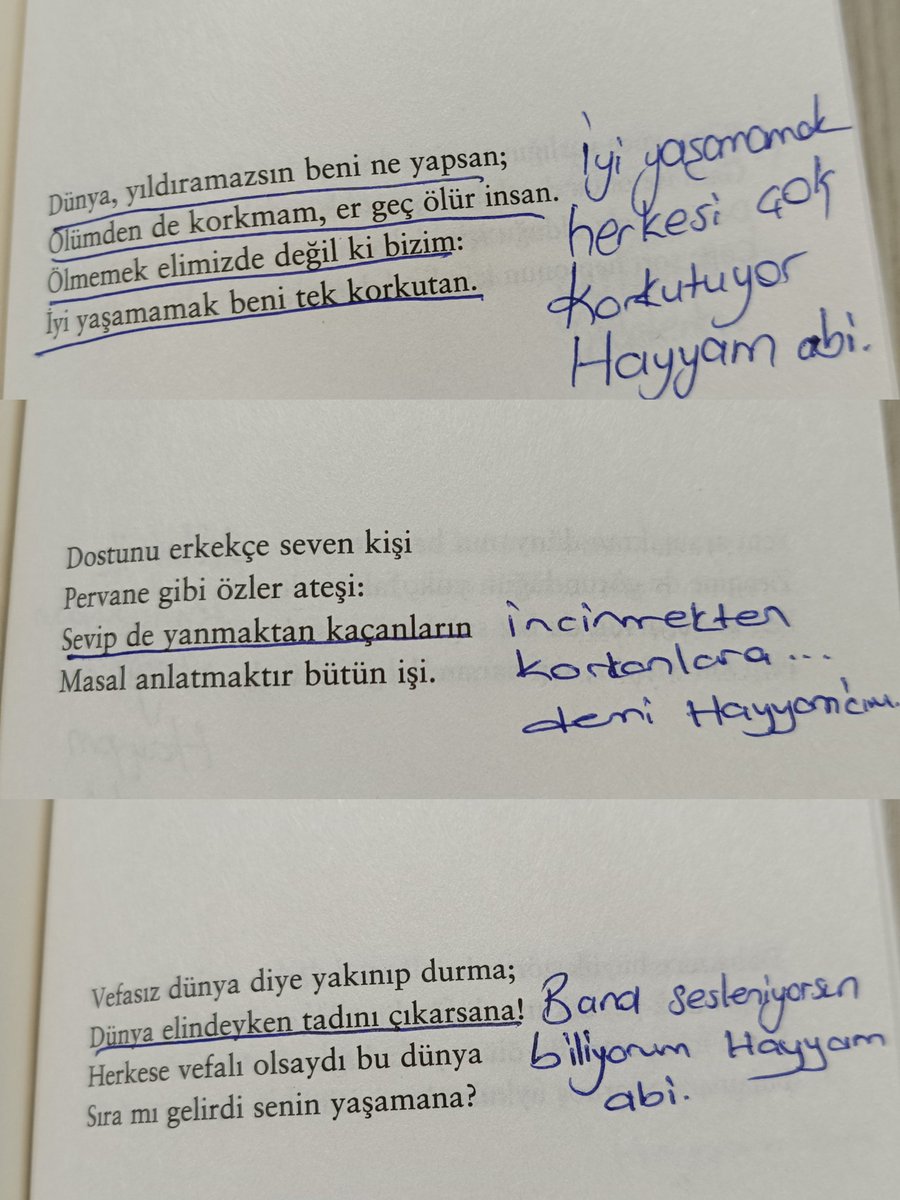 Dünya, yıldıramazsın beni ne yapsan;
Ölümden de korkmam, er geç ölür insan.
Ölmemek elimizde değil ki bizim:
İyi yaşamamak beni tek korkutan.
İyi yaşamamak
herkesi çok
korkutuyor
Hayyam abi.
Dostunu erkekçe seven kişi
Pervane gibi özler ateşi:
Sevip de yanmaktan kaçanların
Masal anlatmaktır bütün işi.
İncinmekten
korkanlara...
deni Hayyam'cım.
Vefasız dünya diye yakınıp durma;
Dünya elindeyken tadını çıkarsana!
Herkese vefalı olsaydı bu dünya
Sıra mı gelirdi senin yaşamana?
Bana sesleniyorsun
biliyorum Hayyam
abi.